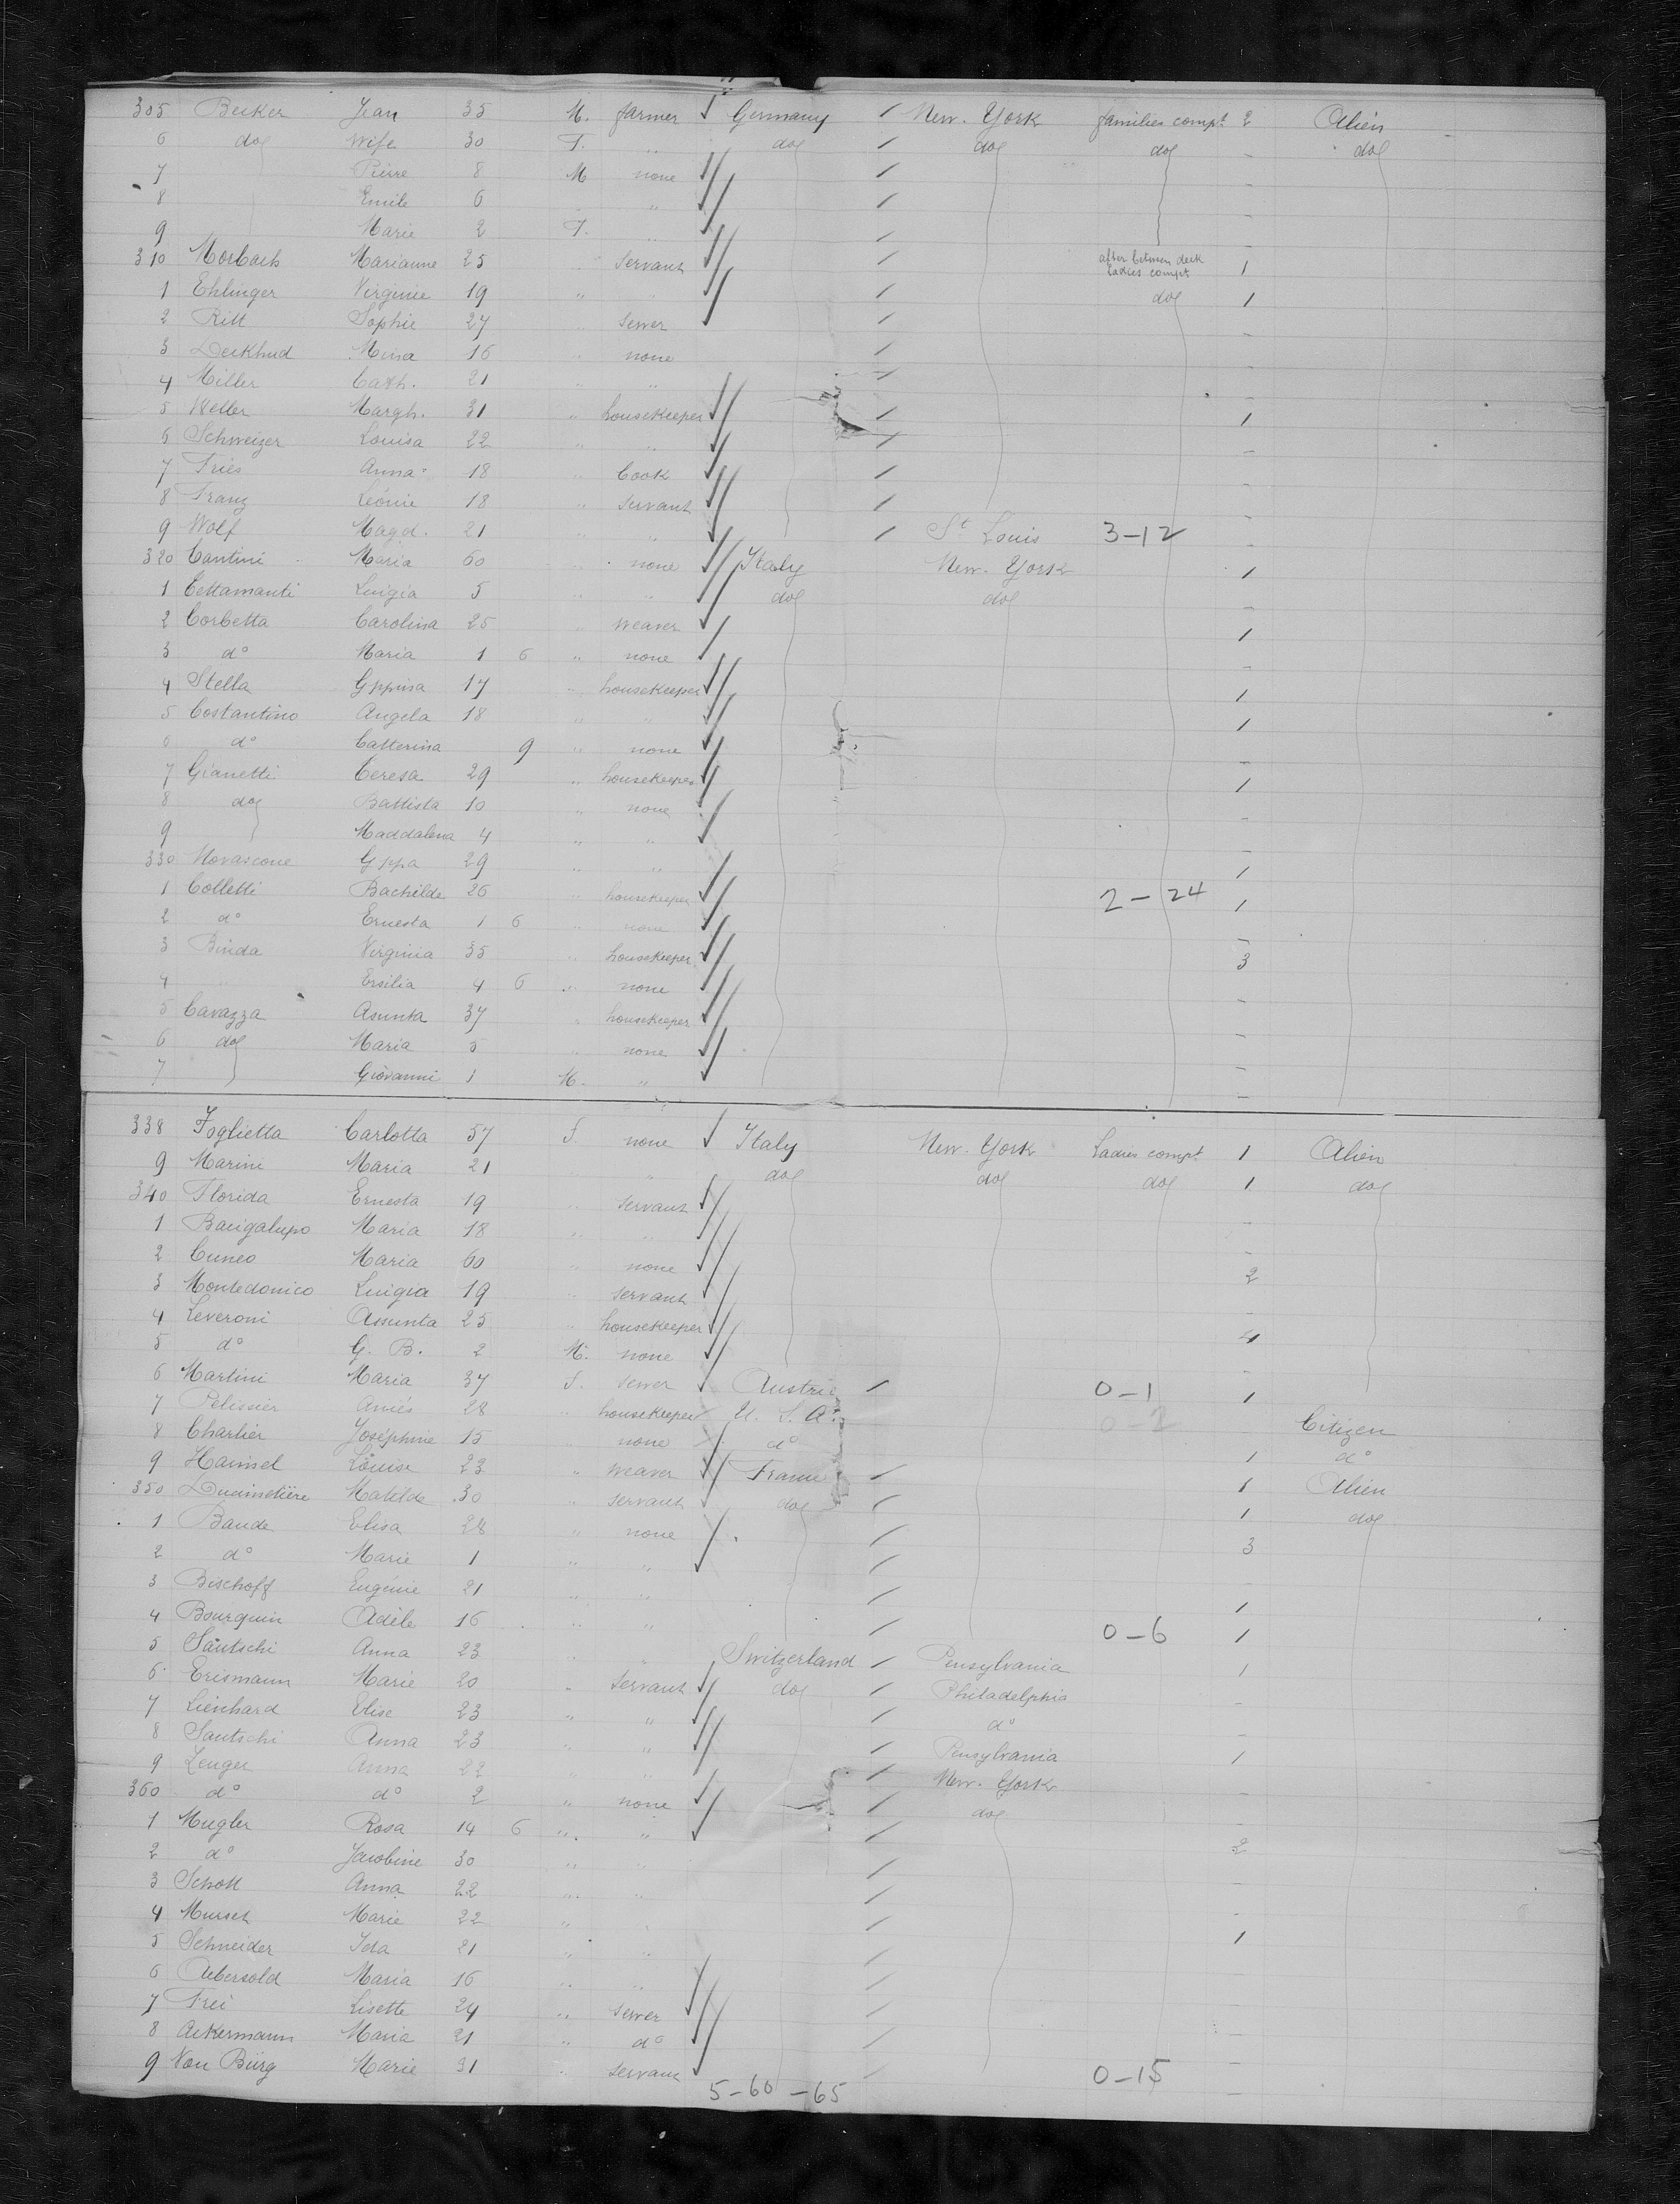 305 Becker Jean 35 M. farmer Germany New. York families compt 2 Alien
6 do Wife 30 F. " do do do - do
7 Pierre 8 M none -
8 Emile 6 " " -
9 Marie 2 F. " -
310 Morbach Marianne 25 " servant after betwen deck Ladies compt 1
1 Ehlinger Virginie 19 " " do 1
2 Ritt Sophie 27 " sewer -
3 Deckhud Mina 16 " none -
4 Miller Cath. 21 " " -
5 Weller Margh. 31 " housekeeper 1
6 Schweizer Louisa 22 " " -
7 Fries Anna 18 " Cook -
8 Franz Léonie 18 " servant -
9 Wolf Magd. 21 " " St Louis 3-12 -
320 Cantini Maria 60 " none Italy New. York 1
1 Cettamanti Luigia 5 " " do do -
2 Corbetta Carolina 25 " weaver 1
3 do Maria 1 6 " none -
4 Stella Gppina 17 " housekeeper 1
5 Costantino Angela 18 " " 1
6 do Catterina 9 " none -
7 Gianetti Teresa 29 " housekeeper 1
8 do Battista 10 " none -
9 Maddalena 4 " " -
330 Novascone Gppa 29 " " 1
1 Colletti Bachilde 26 " housekeeper 2-24 1
2 do Ernesta 1 6 " none -
3 Binda Virginia 35 " housekeeper 3
4 " Ersilia 4 6 " none -
5 Cavazza Asunta 37 " housekeeper -
6 do Maria 5 " none -
7 Giovanni 1 M. " -
338 Foglietta Carlotta 57 F. none Italy New. York Ladies compt 1 Alien
9 Marini Maria 21 " do do do 1 do
340 Florida Ernesta 19 " servant -
1 Bacigalupo Maria 18 " " -
2 Cuneo Maria 60 " none 2
3 Montedonico Luigia 19 " servant -
4 Leveroni Assunta 25 " housekeeper 4
5 do G. B. 2 M. none -
6 Martini Maria 37 F. sewer Austria 0-1 1
7 Pelissier Amiés 28 " housekeeper U. S. A. 0-2 Citizen
8 Charlier Joséphine 15 " none do 1 do
9 Hamsel Louise 23 " weaver France 1 Alien
350 Matilde 30 " servant do 1 do
1 Baude Elisa 28 " none 3
2 do Marie 1 " " -
3 Bischoff Eugénie 21 " " 1
4 Bourquin Adèle 16 " " 0-6 1
5 Sautschi Anna 23 " " Switzerland Pensylvania 1
6 Erismann Marie 20 " Servant do Philadelphia -
7 Lienhard Elise 23 " " do -
8 Sautschi Anna 23 " " Pensylvania 1
9 Zenger Anna 22 " " New. York -
360 do do 2 " none do -
1 Mugler Rosa 14 6 " " 2
2 do Jacobine 30 " " -
3 Schott Anna 22 " " -
4 Mursch Marie 22 " " 1
5 Schneider Ida 21 " "
6 Aebersold Maria 16 " "
7 Frei Lisette 24 " sewer -
8 Ackermann Maria 21 " do -
9 Von Bürg Marie 31 " servant 0-15 -
5-60-65